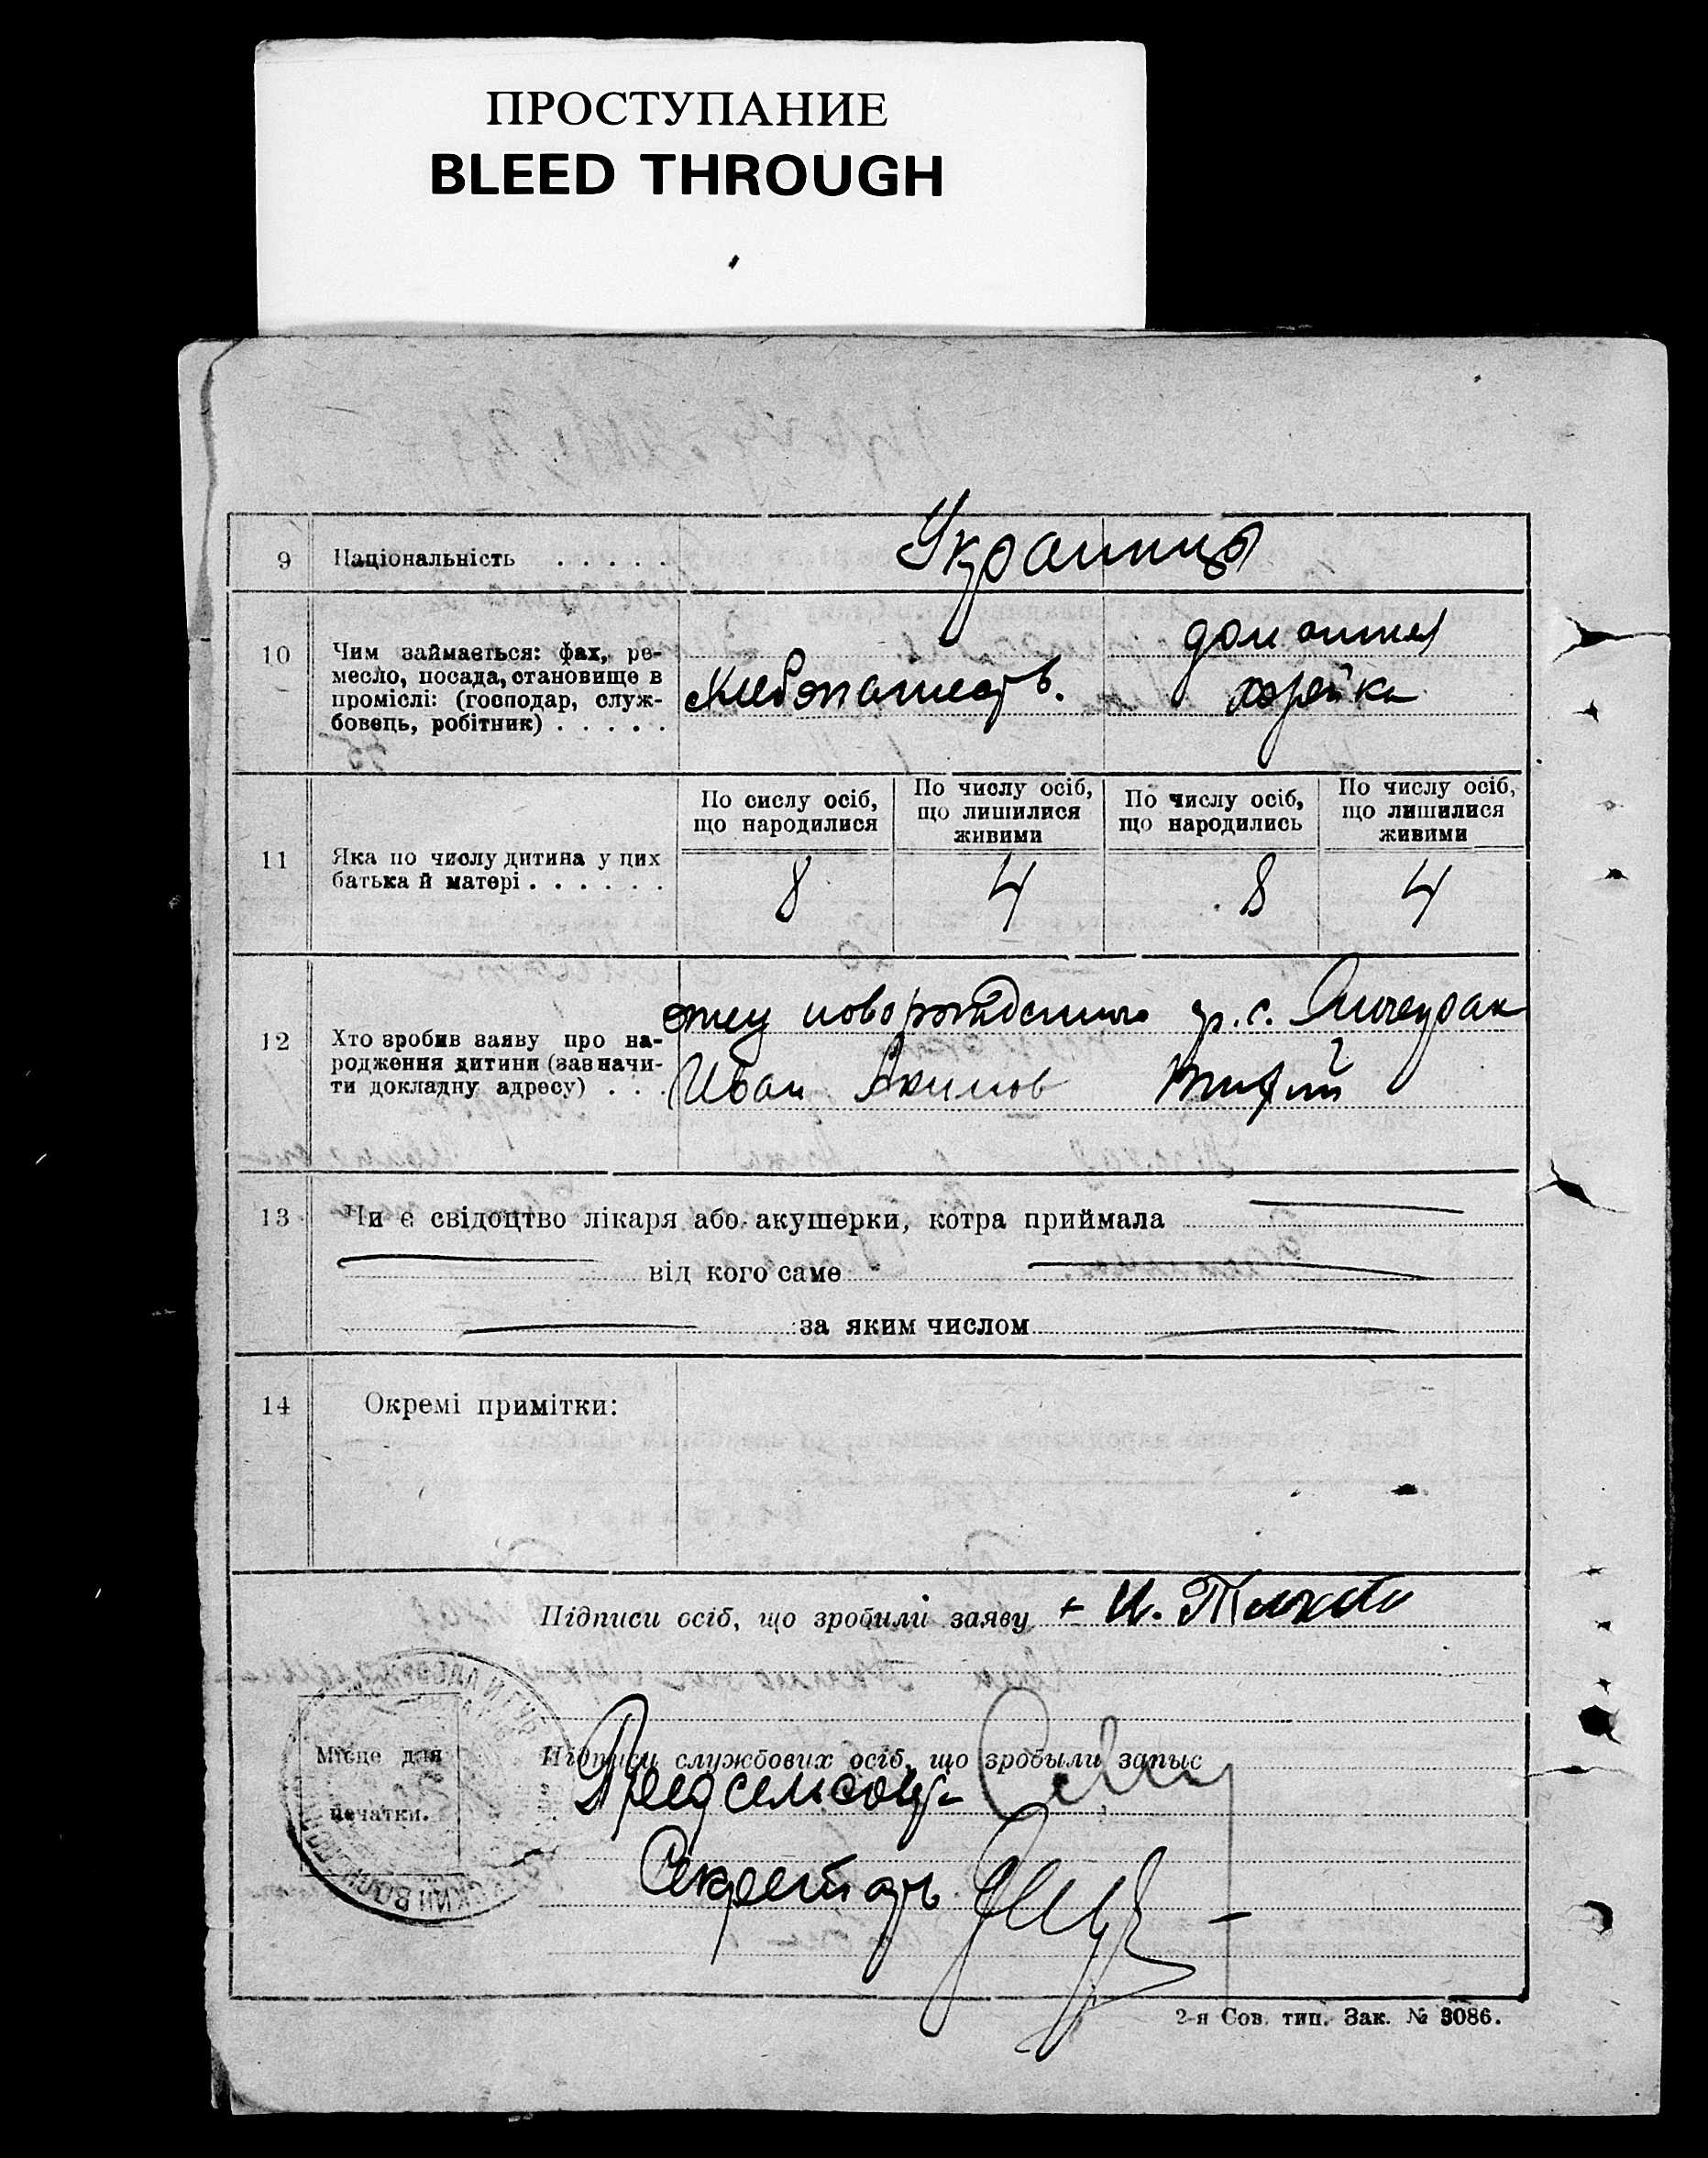 ПРОСТУПАНИЕ
BLEED THROUGH
9 Національність . . . . . Украинцы
10 Чим займається: фах, ре-
месло, посада, становище в
проміслі: (господар, служ-
бовець, робітник) . . . . .
хлебопашест.
домашняя
хозяйка
11 Яка по числу дитина у цих
батька й матері . . . . . .
По сислу осіб,
що народилися
По числу осіб,
що лишилися
живими
По числу осіб,
що народились
По числу осіб,
що лишилися
живими
8 4 8 4
12 Хто зробив заяву про на-
родження дитини (зазначи-
ти докладну адресу) . . .
отец новорожденного гр. с.
Иван Акимов
13 Чи є свідоцтво лікаря або акушерки, котра приймала
від кого саме
за яким числом
14 Окремі примітки:
Підписи осіб, що зробили заяву + И.
Місце для
печатки.
Підписи службових осіб, що зробыли запыс
Предсельсовет
Секретарь
2-я Сов. тип. Зак. № 3086.